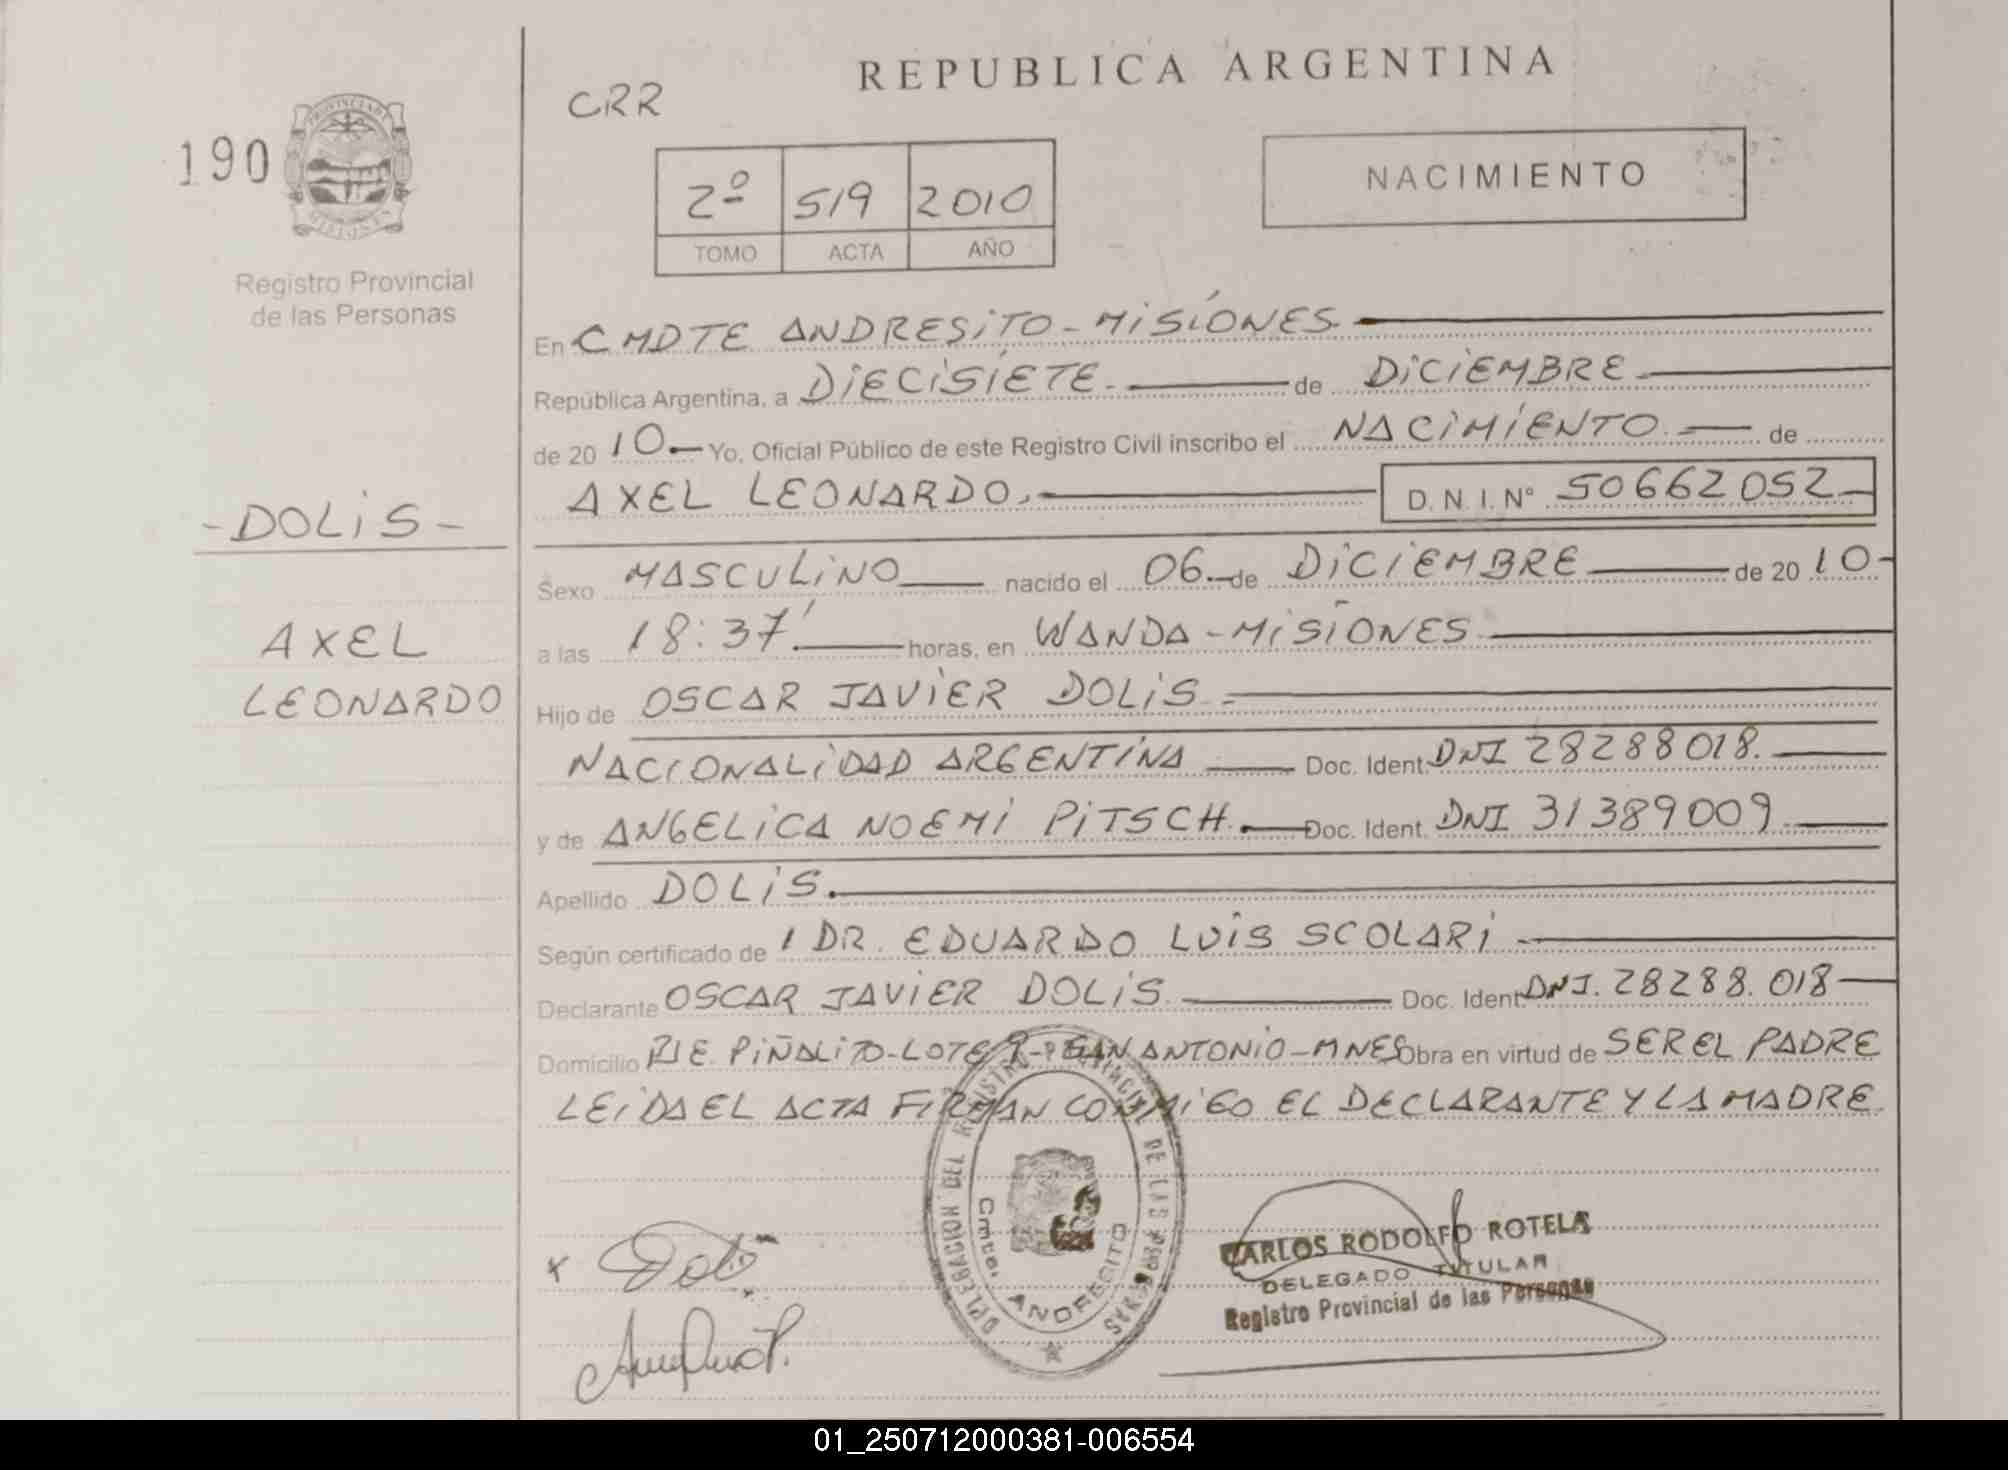 REPUBLICA ARGENTINA
CRR
190
PROVINCIA DE
MISIONES
Registro Provincial
de las Personas
2º 519 2010
TOMO ACTA AÑO
NACIMIENTO
En CMDTE ANDRESITO - MISIONES
República Argentina, a DIECISIETE de DICIEMBRE
de 2010 Yo, Oficial Público de este Registro Civil inscribo el NACIMIENTO de
AXEL LEONARDO. D. N. I. Nº 50662052
- DOLIS -
Sexo MASCULINO nacido el 06 de DICIEMBRE de 2010
AXEL
a las 18:37' horas, en WANDA - MISIONES
LEONARDO
Hijo de OSCAR JAVIER DOLIS
NACIONALIDAD ARGENTINA Doc. Ident. DNI 28288018.
y de ANGELICA NOEMI PITSCH. Doc. Ident. DNI 31389009
Apellido DOLIS.
Según certificado de 1 DR. EDUARDO LUIS SCOLARI
Declarante OSCAR JAVIER DOLIS Doc. Ident. DNI. 28288.018
Domicilio PIÑALITO - LOTE SAN ANTONIO - MNES Obra en virtud de SER EL PADRE
LEIDA EL ACTA FIRMAN CONMIGO EL DECLARANTE Y LA MADRE
DELEGACION DEL REGISTRO PROVINCIAL DE LAS PERSONAS
Cmte. ANDRESITO
CARLOS RODOLFO ROTELA
DELEGADO TITULAR
Registro Provincial de las Personas
01_250712000381-006554